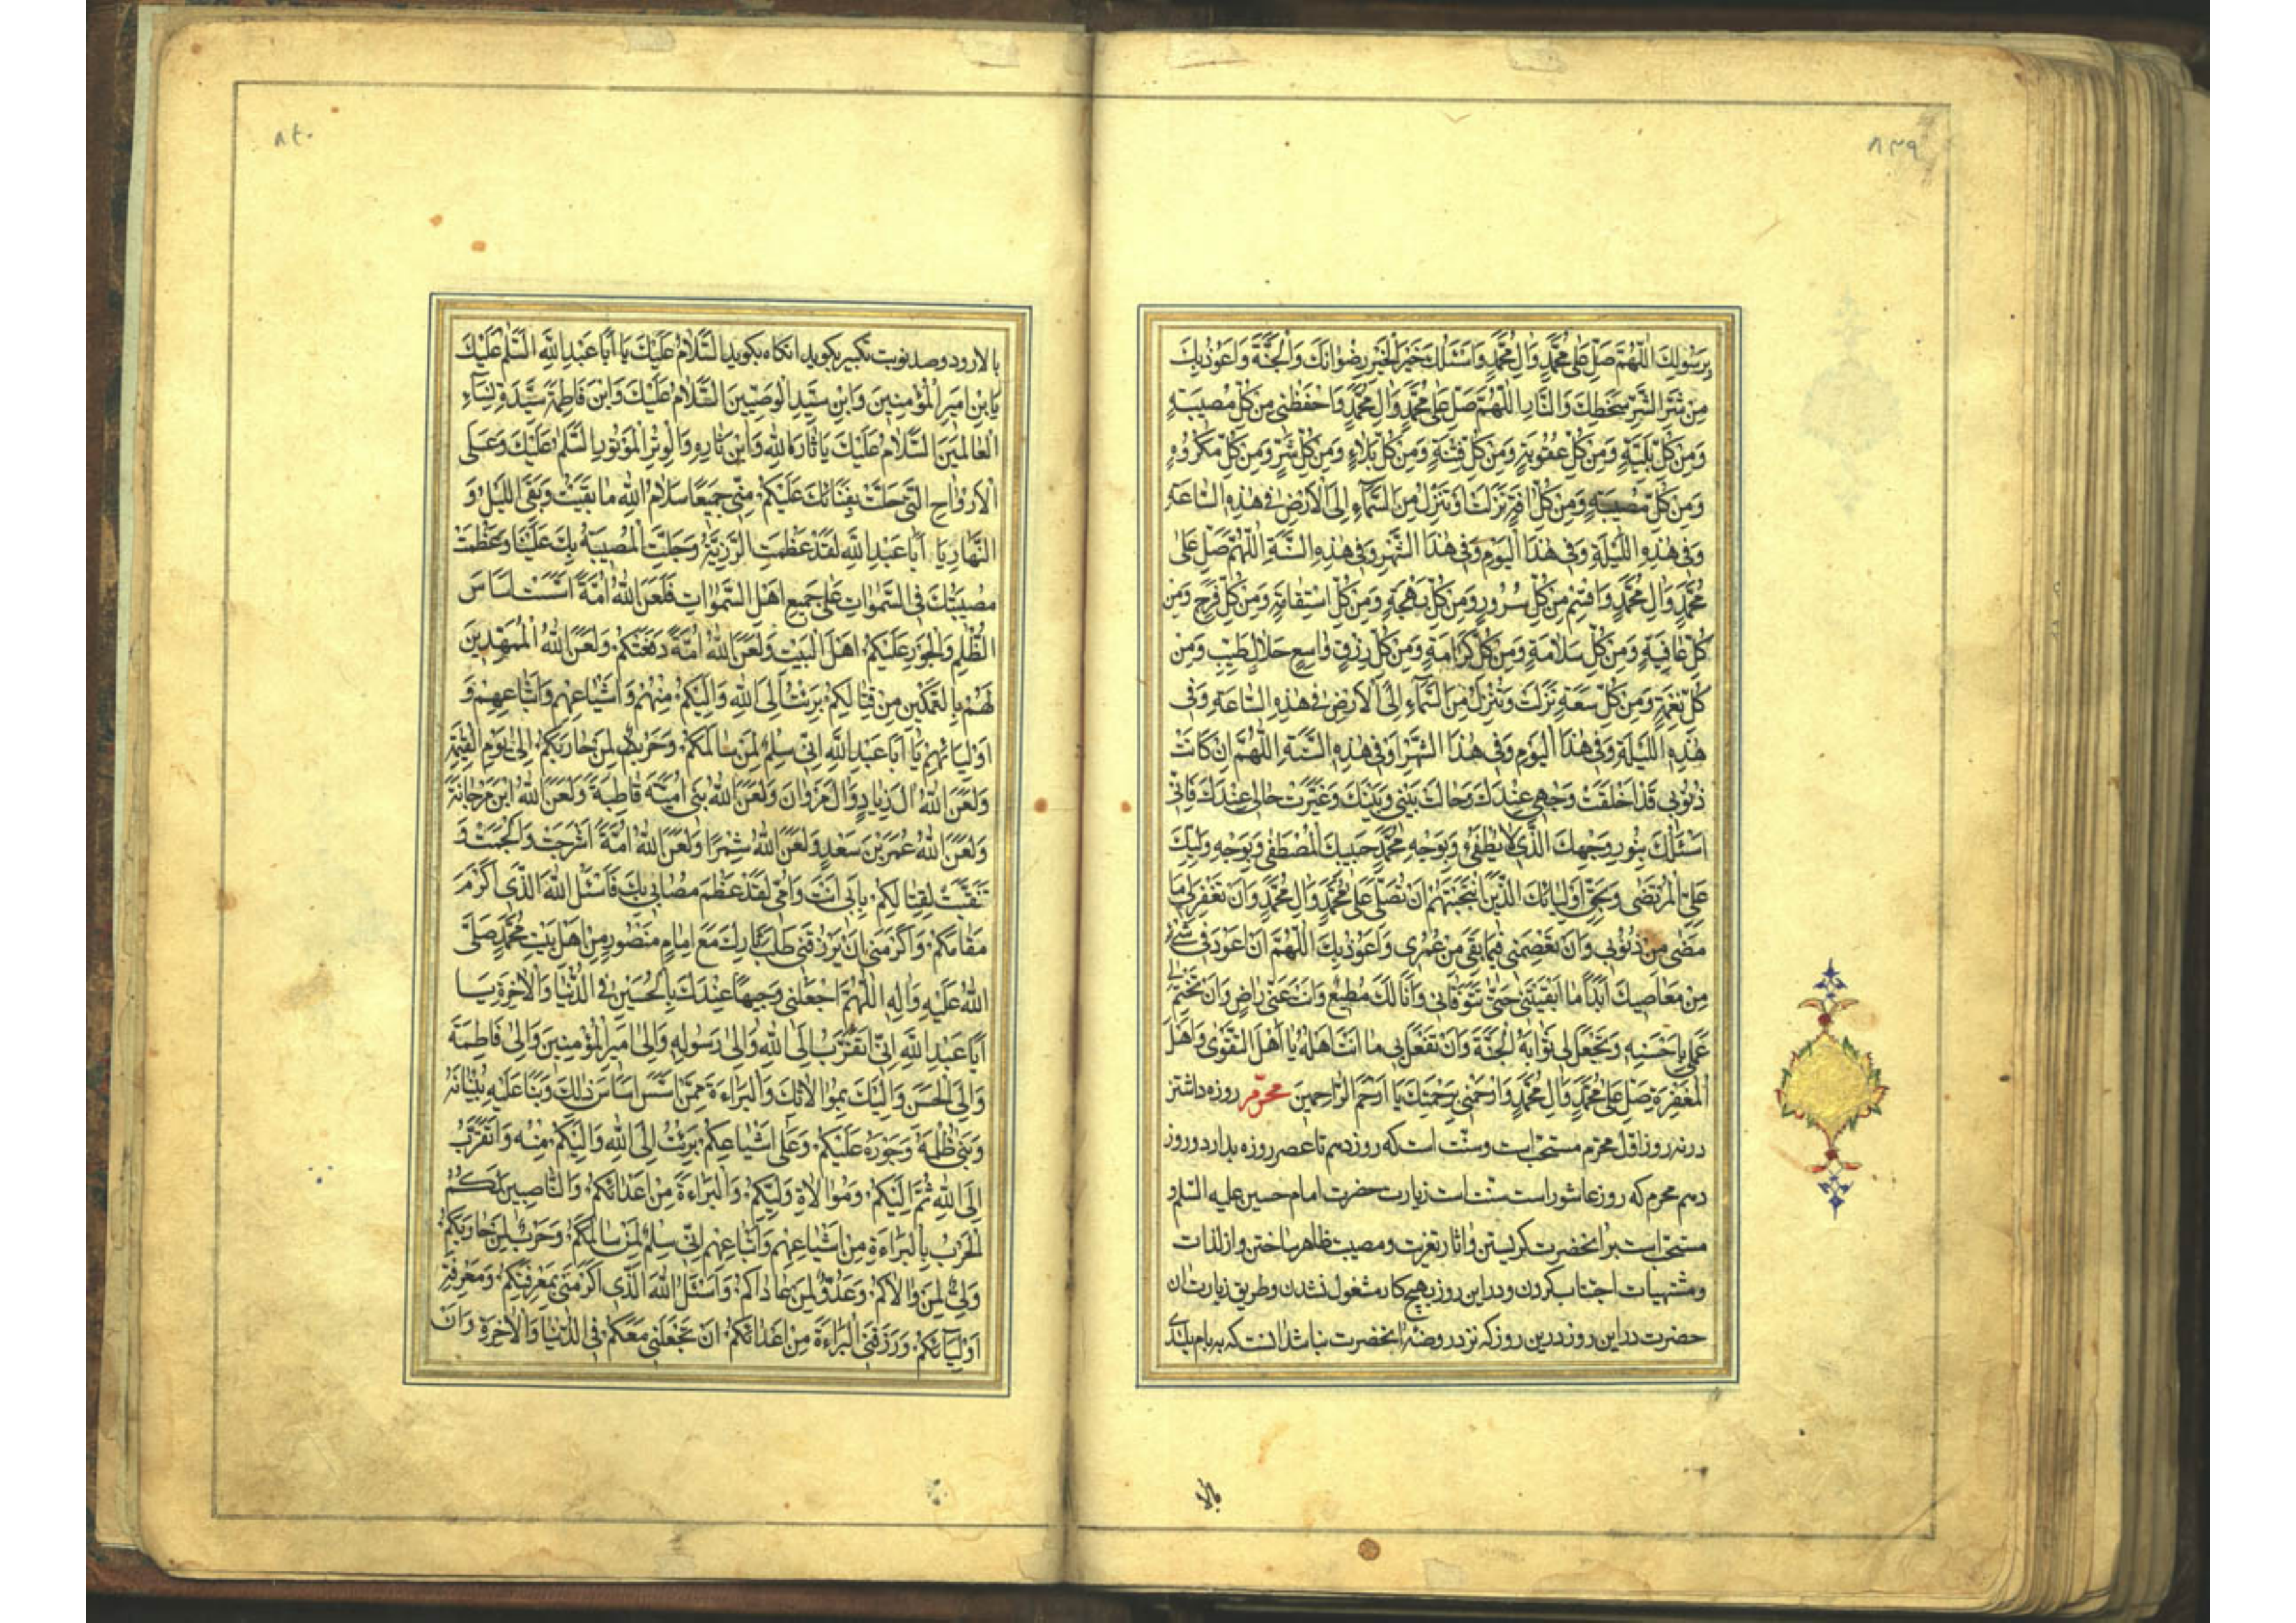 ۸۳۹
بِرَسُولِكَ اللّٰهُمَّ صَلِّ عَلىٰ مُحَمَّدٍ وَاٰلِ مُحَمَّدٍ وَاَسْئَلُكَ خَيْرَ الْخَيْرِ رِضْوٰانَكَ وَالْجَنَّةَ وَاَعُوذُ بِكَ
مِنْ شَرِّ الشَّرِّ سَخَطِكَ وَالنّٰارِ اللّٰهُمَّ صَلِّ عَلىٰ مُحَمَّدٍ وَاٰلِ مُحَمَّدٍ وَاحْفَظْنِى مِنْ كُلِّ مُصِيبَةٍ
وَمِنْ كُلِّ بَلِيَّةٍ وَمِنْ كُلِّ عُقُوبَةٍ وَمِنْ كُلِّ فِتْنَةٍ وَمِنْ كُلِّ بَلاٰءٍ وَمِنْ كُلِّ شَرٍّ وَمِنْ كُلِّ مَكْرُوهٍ
وَمِنْ كُلِّ مُصِيبَةٍ وَمِنْ كُلِّ اٰفَةٍ نَزَلَتْ اَوْ تَنْزِلُ مِنَ السَّمٰاءِ اِلَى الْاَرْضِ فِى هٰذِهِ السّٰاعَةِ
وَفِى هٰذِهِ اللَّيْلَةِ وَفِى هٰذَا الْيَوْمِ وَفِى هٰذَا الشَّهْرِ وَفِى هٰذِهِ السَّنَةِ اللّٰهُمَّ صَلِّ عَلىٰ
مُحَمَّدٍ وَاٰلِ مُحَمَّدٍ وَاقْسِمْ مِنْ كُلِّ سُرُورٍ وَمِنْ كُلِّ بَهْجَةٍ وَمِنْ كُلِّ اسْتِقٰامَةٍ وَمِنْ كُلِّ فَرَجٍ وَمِنْ
كُلِّ عٰافِيَةٍ وَمِنْ كُلِّ سَلاٰمَةٍ وَمِنْ كُلِّ كَرٰامَةٍ وَمِنْ كُلِّ رِزْقٍ وٰاسِعٍ حَلاٰلٍ طَيِّبٍ وَمِنْ
كُلِّ نِعْمَةٍ وَمِنْ كُلِّ سَعَةٍ نَزَلَتْ وَتَنْزِلُ مِنَ السَّمٰاءِ اِلَى الْاَرْضِ فِى هٰذِهِ السّٰاعَةِ وَفِى
هٰذِهِ اللَّيْلَةِ وَفِى هٰذَا الْيَوْمِ وَفِى هٰذَا الشَّهْرِ وَفِى هٰذِهِ السَّنَةِ اللّٰهُمَّ اِنْ كٰانَتْ
ذُنُوبِى قَدْ اَخْلَقَتْ وَجْهِى عِنْدَكَ وَحٰالَتْ بَيْنِى وَبَيْنَكَ وَغَيَّرَتْ حٰالِى عِنْدَكَ فَاِنِّى
اَسْئَلُكَ بِنُورِ وَجْهِكَ الَّذِى لاٰ يُطْفَىءُ وَبِوَجْهِ مُحَمَّدٍ حَبِيبِكَ الْمُصْطَفىٰ وَبِوَجْهِ وَلِيِّكَ
عَلِىٍّ الْمُرْتَضىٰ وَبِحَقِّ اَوْلِيٰائِكَ الَّذِينَ انْتَجَبْتَهُمْ اَنْ تُصَلِّىَ عَلىٰ مُحَمَّدٍ وَاٰلِ مُحَمَّدٍ وَاَنْ تَغْفِرَ لِى مٰا
مَضىٰ مِنْ ذُنُوبِى وَاَنْ تَعْصِمَنِى فِيمٰا بَقِىَ مِنْ عُمْرِى وَاَعُوذُ بِكَ اللّٰهُمَّ اَنْ اَعُودَ فِى شَىْءٍ
مِنْ مَعٰاصِيكَ اَبَدًا مٰا اَبْقَيْتَنِى حَتّٰى تَتَوَفّٰانِى وَاَنَا لَكَ مُطِيعٌ وَاَنْتَ عَنِّى رٰاضٍ وَاَنْ تَخْتِمَ لِى
عَمَلِى بِاَحْسَنِهِ وَتَجْعَلَ لِى ثَوٰابَهُ الْجَنَّةَ وَاَنْ تَفْعَلَ بِى مٰا اَنْتَ اَهْلُهُ يٰا اَهْلَ التَّقْوىٰ وَاَهْلَ
الْمَغْفِرَةِ صَلِّ عَلىٰ مُحَمَّدٍ وَاٰلِ مُحَمَّدٍ وَارْحَمْنِى بِرَحْمَتِكَ يٰا اَرْحَمَ الرّٰاحِمِينَ محرّم روزه داشتن
در نه روز اوّل محرّم مستحبّ است و سنّت است كه روز دهم تا عصر روزه بدارد و روز
دهم محرم كه روز عاشور است سنّت است زيارت حضرت امام حسين عليه السّلم و
مستحبّ است بر آنحضرت كريستن و آثار تعزيت و مصيبت ظاهر ساختن و از لذات
و مشتهيات اجتناب كردن و در اين روز بهيچ كار مشغول نشدن و طريق زيارت آن
حضرت در اين روز در ين روز كه نزد روضهٔ آنحضرت نباشد آنست كه به بام بلندى
بالا
۸۴۰
بالا رود و صد نوبت تكبير بكويد آنكاه بكويد السَّلاٰمُ عَلَيْكَ يٰا اَبٰا عَبْدِ اللّٰهِ السَّلٰمُ عَلَيْكَ
يَا بْنَ اَمِيرِ الْمُؤْمِنِينَ وَابْنَ سَيِّدِ الْوَصِيِّينَ السَّلاٰمُ عَلَيْكَ وَابْنَ فٰاطِمَةَ سَيِّدَةِ نِسٰاءِ
الْعٰالَمِينَ السَّلاٰمُ عَلَيْكَ يٰا ثٰارَ اللّٰهِ وَابْنَ ثٰارِهِ وَالْوِتْرَ الْمَوْتُورِ السَّلٰمُ عَلَيْكَ وَعَلَى
الْاَرْوٰاحِ الَّتِى حَلَّتْ بِفِنٰائِكَ عَلَيْكُمْ مِنِّى جَمِيعًا سَلاٰمُ اللّٰهِ مٰا بَقِيتُ وَبَقِىَ اللَّيْلُ وَ
النَّهٰارُ يٰا اَبٰا عَبْدِ اللّٰهِ لَقَدْ عَظُمَتِ الرَّزِيَّةُ وَجَلَّتِ الْمُصِيبَةُ بِكَ عَلَيْنٰا وَعَظُمَتْ
مُصِيبَتُكَ فِى السَّمٰوٰاتِ عَلىٰ جَمِيعِ اَهْلِ السَّمٰوٰاتِ فَلَعَنَ اللّٰهُ اُمَّةً اَسَّسَتْ اَسٰاسَ
الظُّلْمِ وَالْجَوْرِ عَلَيْكُمْ اَهْلَ الْبَيْتِ وَلَعَنَ اللّٰهُ اُمَّةً دَفَعَتْكُمْ وَلَعَنَ اللّٰهُ الْمُمَهِّدِينَ
لَهُمْ بِالتَّمْكِينِ مِنْ قِتٰالِكُمْ بَرِئْتُ اِلَى اللّٰهِ وَاِلَيْكُمْ مِنْهُمْ وَاَشْيٰاعِهِمْ وَاَتْبٰاعِهِمْ وَ
اَوْلِيٰائِهِمْ يٰا اَبٰا عَبْدِ اللّٰهِ اِنِّى سِلْمٌ لِمَنْ سٰالَمَكُمْ وَحَرْبٌ لِمَنْ حٰارَبَكُمْ اِلىٰ يَوْمِ الْقِيٰمَةِ
وَلَعَنَ اللّٰهُ اٰلَ زِيٰادٍ وَاٰلَ مَرْوٰانَ وَلَعَنَ اللّٰهُ بَنِى اُمَيَّةَ قٰاطِبَةً وَلَعَنَ اللّٰهُ ابْنَ مَرْجٰانَةَ
وَلَعَنَ اللّٰهُ عُمَرَ بْنَ سَعْدٍ وَلَعَنَ اللّٰهُ شِمْرًا وَلَعَنَ اللّٰهُ اُمَّةً اَسْرَجَتْ وَاَلْجَمَتْ وَ
تَنَقَّبَتْ لِقِتٰالِكُمْ بِاَبِى اَنْتَ وَاُمِّى لَقَدْ عَظُمَ مُصٰابِى بِكَ فَاَسْئَلُ اللّٰهَ الَّذِى اَكْرَمَ
مَقٰامَكُمْ وَاَكْرَمَنِى اَنْ يَرْزُقَنِى طَلَبَ ثٰارِكَ مَعَ اِمٰامٍ مَنْصُورٍ مِنْ اَهْلِ بَيْتِ مُحَمَّدٍ صَلَّى
اللّٰهُ عَلَيْهِ وَاٰلِهِ اللّٰهُمَّ اجْعَلْنِى وَجِيهًا عِنْدَكَ بِالْحُسَيْنِ فِى الدُّنْيٰا وَالْاٰخِرَةِ يٰا
اَبٰا عَبْدِ اللّٰهِ اِنِّى اَتَقَرَّبُ اِلَى اللّٰهِ وَاِلىٰ رَسُولِهِ وَاِلىٰ اَمِيرِ الْمُؤْمِنِينَ وَاِلىٰ فٰاطِمَةَ
وَاِلَى الْحَسَنِ وَاِلَيْكَ بِمُوٰالاٰتِكَ وَالْبَرٰاءَةِ مِمَّنْ اَسَّسَ اَسٰاسَ ذٰلِكَ وَبَنٰا عَلَيْهِ بُنْيٰانَهُ
وَبَنىٰ ظُلْمَهُ وَجَوْرَهُ عَلَيْكُمْ وَعَلىٰ اَشْيٰاعِكُمْ بَرِئْتُ اِلَى اللّٰهِ وَاِلَيْكُمْ مِنْهُ وَاَتَقَرَّبُ
اِلَى اللّٰهِ ثُمَّ اِلَيْكُمْ وَمُوٰالاٰةِ وَلِيِّكُمْ وَالْبَرٰاءَةِ مِنْ اَعْدٰائِكُمْ وَالنّٰاصِبِينَ لَكُمُ
الْحَرْبَ بِالْبَرٰاءَةِ مِنْ اَشْيٰاعِهِمْ وَاَتْبٰاعِهِمْ اِنِّى سِلْمٌ لِمَنْ سٰالَمَكُمْ وَحَرْبٌ لِمَنْ حٰارَبَكُمْ
وَلِىٌّ لِمَنْ وٰالاٰكُمْ وَعَدُوٌّ لِمَنْ عٰادٰاكُمْ وَاَسْئَلُ اللّٰهَ الَّذِى اَكْرَمَنِى بِمَعْرِفَتِكُمْ وَمَعْرِفَةِ
اَوْلِيٰائِكُمْ وَرَزَقَنِى الْبَرٰاءَةَ مِنْ اَعْدٰائِكُمْ اَنْ يَجْعَلَنِى مَعَكُمْ فِى الدُّنْيٰا وَالْاٰخِرَةِ وَاَنْ